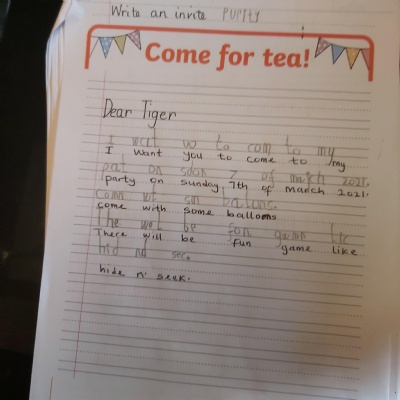 Write an invite PURITY
Come for tea!
Dear Tiger
I wat to com to my
I want you to come to my
pat on soon 7 of march 2021.
party on sunday, 7th of march 2021.
Com wt sm balons.
come with some balloons
The wol be fon gamn lic
There will be fun game like
hid nd sec.
hide n' seek.